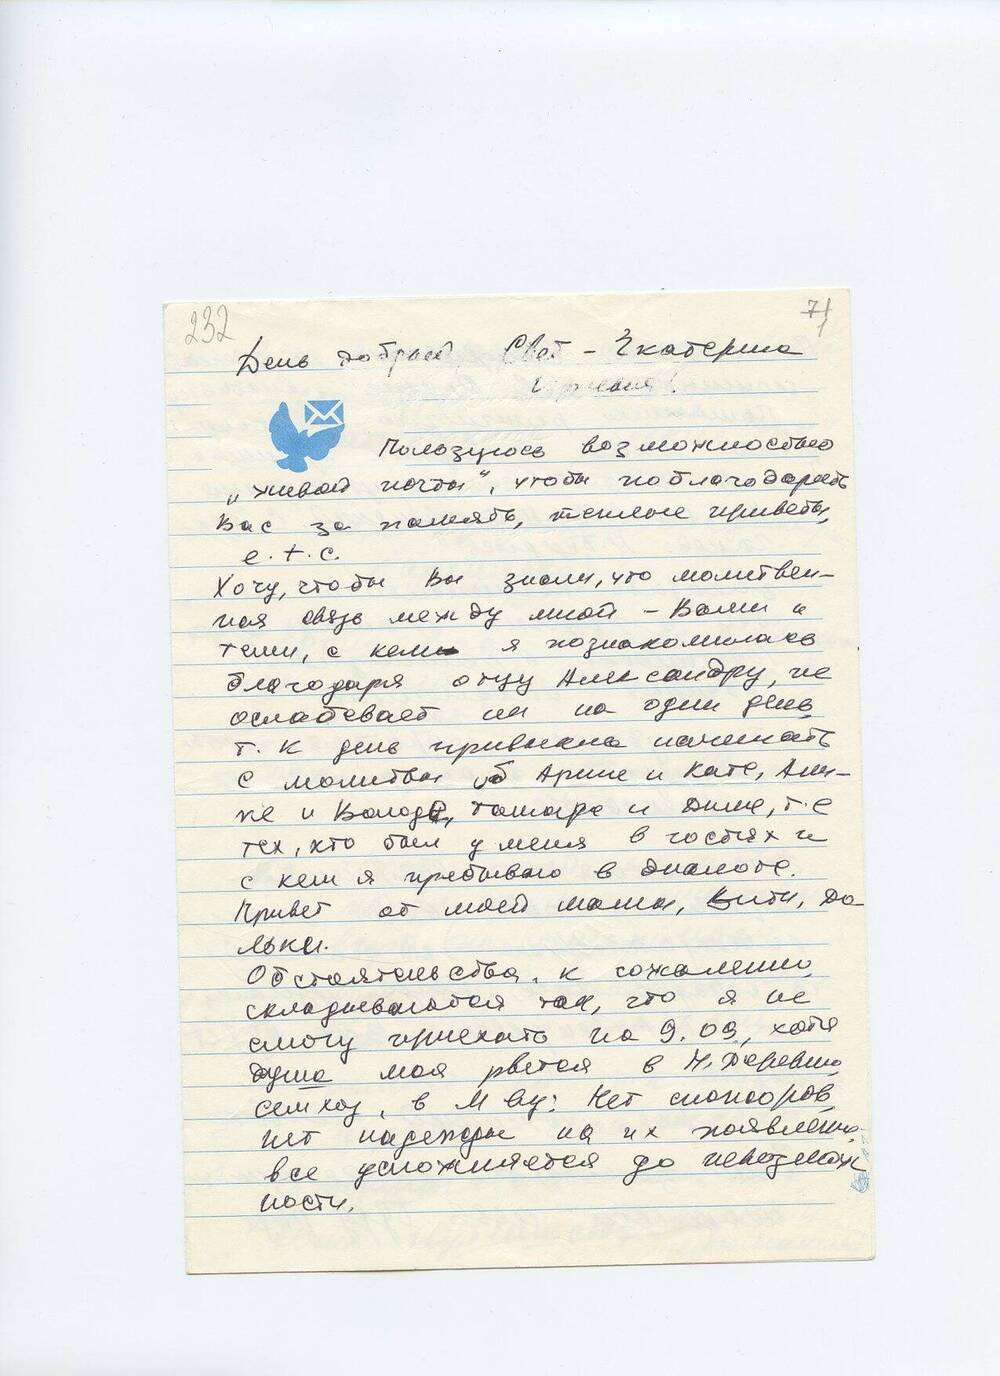 232
71
1
День добрый, Свет - Екатерина
Юрьевна!
Пользуюсь возможностью
„живой почты“, чтобы поблагодарить
Вас за память, теплые приветы,
e. t. c.
Хочу, чтобы Вы знали, что молитвен-
ная связь между мной - Вами и
теми, с кем я познакомилась
благодаря отцу Александру, не
ослабевает ни на один день
т. к день привыкла начинать
с молитвы об Арине и Кате, Али-
ке и Володе, Тамаре и Диме, т. е
тех, кто был у меня в гостях и
с кем я пребываю в диалоге.
Привет от моей мамы, Вити, Да
льки.
Обстоятельства, к сожалению,
складываются так, что я не
смогу приехать на 9. 09, хотя
душа моя рвется в Н. Деревню,
Семхоз, в Мву: Нет спонсоров,
нет надежды на их появление,
все усложняется до невозмож
ности.